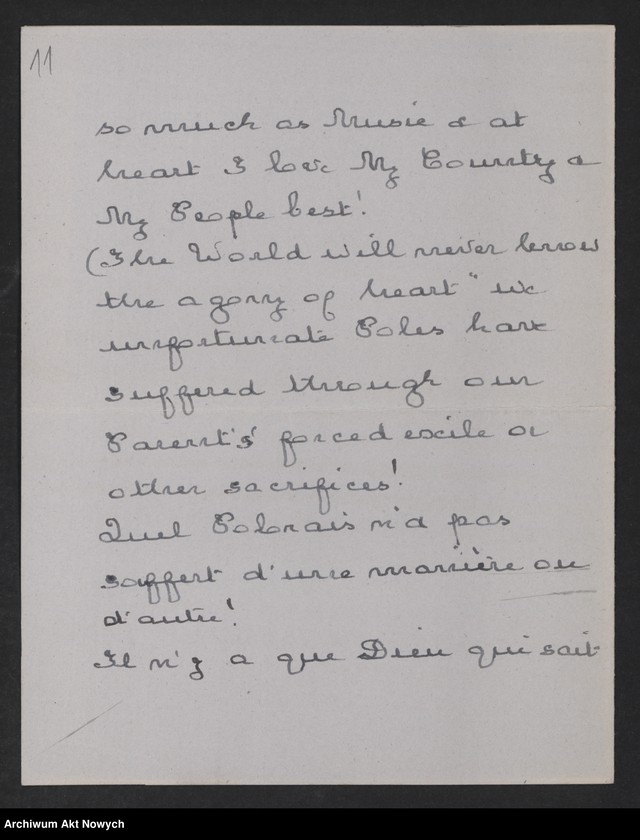 11
so much as Music & at
heart I love My Country &
My People best!
(The World will never know
the agony of heart" we
unfortunate Poles have
suffered through our
Parent's' forced exile or
other sacrifices!
Quel Polonais n'a pas
souffert d'une manière ou
d'autre!
Il n'y a que Dieu qui sait
Archiwum Akt Nowych